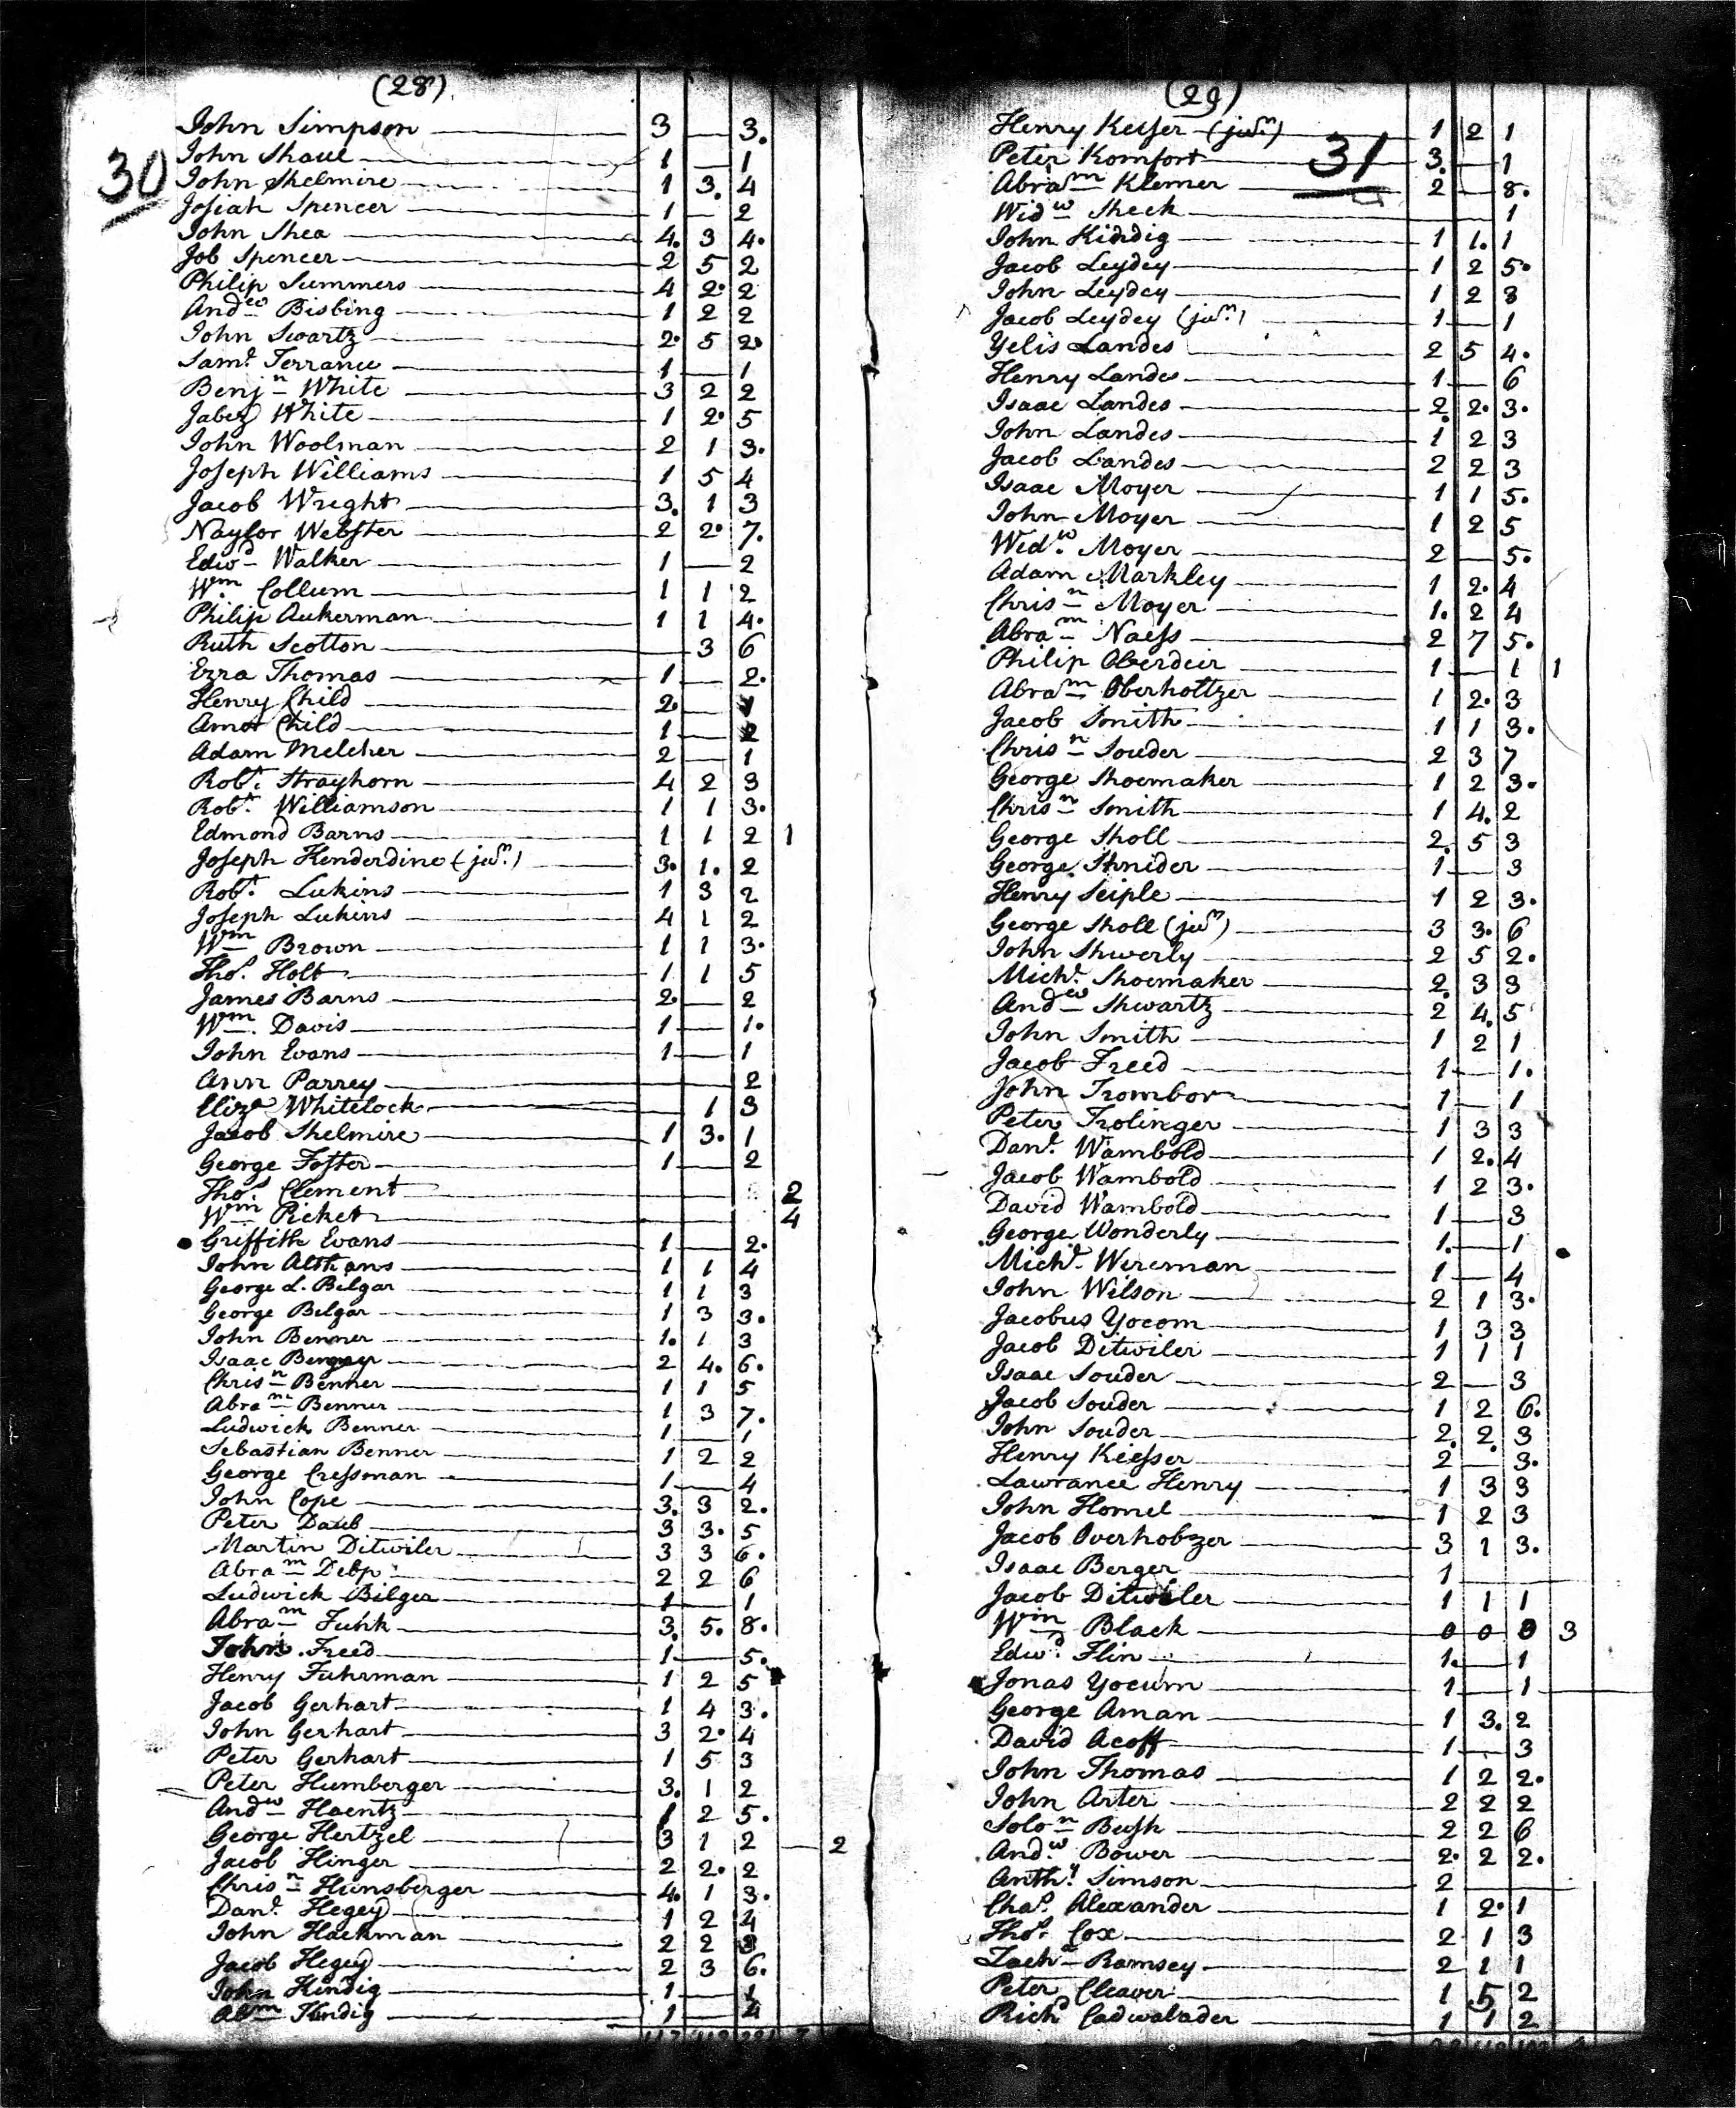 (28)
30
John Simpson 3 — 3.
John Shaue 1 — 1
John Shelmire 1 3. 4
Josiah Spencer 1 — 2
John Shea 4. 3 4.
Job Spencer 2 5 2
Philip Summers 4 2. 2
Andw Bisbing 1 2 2
John Swartz 2. 5 2.
Saml Terrance 1 — 1
Benjn White 3 2 2
Jabez White 1 2. 5
John Woolman 2 1 3.
Joseph Williams 1 5 4
Jacob Wright 3. 1 3
Naylor Webster 2 2. 7.
Edwd Walker 1 — 2
Wm Collum 1 1 2
Philip Aukerman 1 1 4.
Ruth Scotton — 3 6
Ezra Thomas 1 — 2.
Henry Child 2. —
Amos Child 1 — 2
Adam Melcher 2 — 1
Robt Strayhorn 4 2 3
Robt Williamson 1 1 3.
Edmond Barns 1 1 2 1
Joseph Henderdine (junr) 3. 1. 2
Robt Lukins 1 3 2
Joseph Lukins 4 1 2
Wm Brown 1 1 3.
Thos Holt 1 1 5
James Barns 2. — 2
Wm Davis 1 — 1.
John Evans 1 — 1
Ann Parrey — 2
Eliza Whitelock — 1 3
Jacob Shelmire 1 3. 1
George Foster 1 — 2
Thos Clement — 2
Wm Picket — 4
Griffith Evans 1 — 2.
John Althans 1 1 4
George L. Belgar 1 1 3
George Belgar 1 3 3.
John Benner 1. 1 3
Isaac Bergey 2 4. 6.
Chrisn Benner 1 1 5
Abram Benner 1 3 7.
Ludwick Benner 1 — 1
Sebastian Benner 1 2 2
George Cressman 1 — 4
John Cope 3. 3 2.
Peter Daub 3 3. 5
Martin Ditwiler 3 3 6.
Abram Delp 2 2 6
Ludwick Bilger 1 — 1
Abram Funk 3. 5. 8.
John Freed 1 — 5.
Henry Fuhrman 1 2 5
Jacob Gerhart 1 4 3.
John Gerhart 3 2. 4
Peter Gerhart 1 5 3
Peter Humberger 3. 1 2
Andw Haentz 1 2 5.
George Hertzel 3 1 2 — 2
Jacob Hinger 2 2. 2
Chrisn Hunsberger 4. 1 3.
Danl Hegey 1 2 4
John Hackman 2 2 3
Jacob Hegey 2 3 6.
John Kindig 1 — 1
Abm Kindig 1 — 4
(29)
31
Henry Keisser (junr) 1 2 1
Peter Komfort 3. — 1
Abram Klemer 2 — 8.
Widw Sheck — 1
John Kindig 1 1. 1
Jacob Leydey 1 2 5.
John Leydey 1 2 3
Jacob Leydey (junr) 1 — 1
Yelis Landes 2 5 4.
Henry Landes 1 — 6
Isaac Landes 2. 2. 3.
John Landes 1 2 3
Jacob Landes 2 2 3
Isaac Moyer 1 1 5.
John Moyer 1 2 5
Widw Moyer 2 — 5.
Adam Markley 1 2. 4
Chrisn Moyer 1. 2 4
Abram Naess 2 7 5.
Philip Oberdeir 1 — 1 1
Abram Oberholtzer 1 2. 3
Jacob Smith 1 1 3.
Chrisn Souder 2 3 7
George Shoemaker 1 2 3.
Chrisn Smith 1 4. 2
George Sholl 2. 5 3
George Shnider 1 — 3
Henry Seiple 1 2 3.
George Sholl (junr) 3 3. 6
John Shwerly 2 5 2.
Michl Shoemaker 2. 3 3
Andw Shwartz 2 4. 5
John Smith 1 2 1
Jacob Freed 1 — 1.
John Trombor 1 — 1
Peter Trolinger 1 3 3
Danl Wambold 1 2. 4
Jacob Wambold 1 2 3.
David Wambold 1 — 3
George Wonderly 1. — 1
Michl Wireman 1 — 4
John Wilson 2 1 3.
Jacobus Yocom 1 3 3
Jacob Ditwiler 1 1 1
Isaac Souder 2 — 3
Jacob Souder 1 2 6.
John Souder 2. 2. 3
Henry Kiesser 2 — 3.
Lawrance Henry 1 3 3
John Homel 1 2 3
Jacob Overholtzer 3 1 3.
Isaac Berger 1 —
Jacob Ditwiler 1 1 1
Wm Black 0 0 0 3
Edwd Flin 1. — 1
Jonas Yocum 1 — 1
George Aman 1 3. 2
David Acoff 1 — 3
John Thomas 1 2 2.
John Arter 2 2 2
Solon Bush 2 2 6
Andw Bower 2. 2 2.
Anthy Simson 2 —
Chas Alexander 1 2. 1
Thos Cox 2 1 3
Zacha Ramsey 2 1 1
Peter Cleaver 1 5 2
Richd Cadwalader 1 1 2